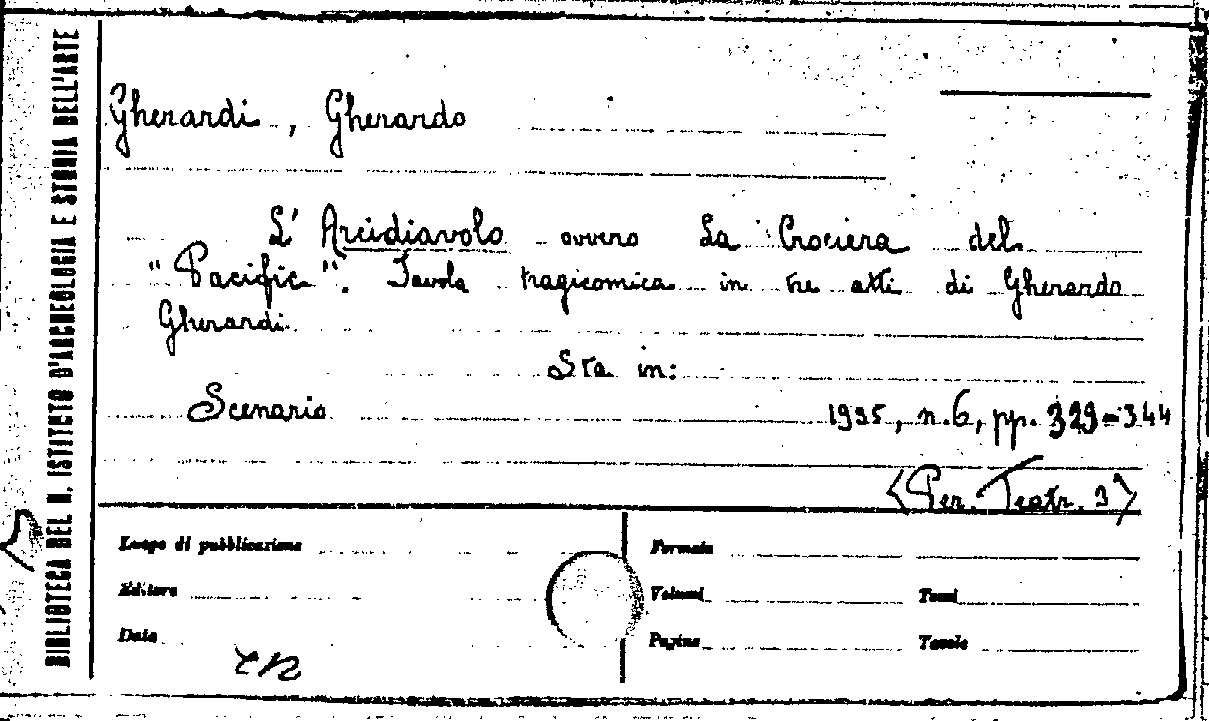 BIBLIOTECA DEL R. ISTITUTO D'ARCHEOLOGIA E STORIA DELL'ARTE
Gherardi, Gherardo
L' Arcidiavolo ovvero La Crociera del
"Pacific". Favola tragicomica in tre atti di Gherardo
Gherardi.
Sta in:
Scenario 1935, n.6, pp. 329-344
<Per. Teatr. 3>
Luogo di pubblicazione
Formato
Editore
Volumi Tomi
Data
Pagine Tavole